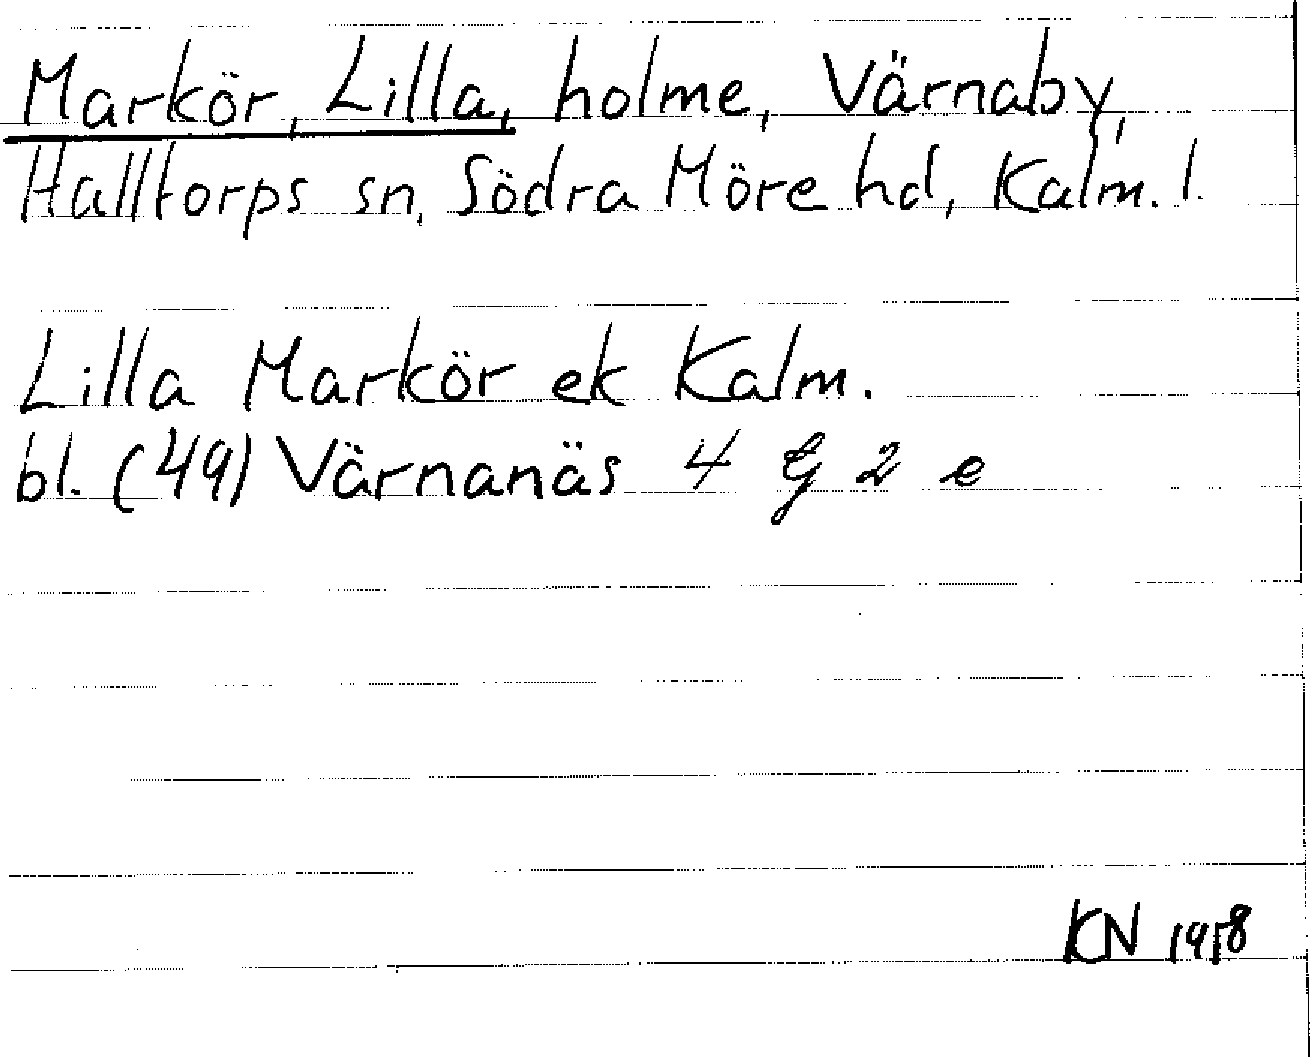 Markör, Lilla, holme, Värnaby,
Halltorps sn, Södra Möre hd, Kalm. l.
Lilla Markör ek Kalm.
bl. (49) Värnanäs 4 G 2 e
KN 1958